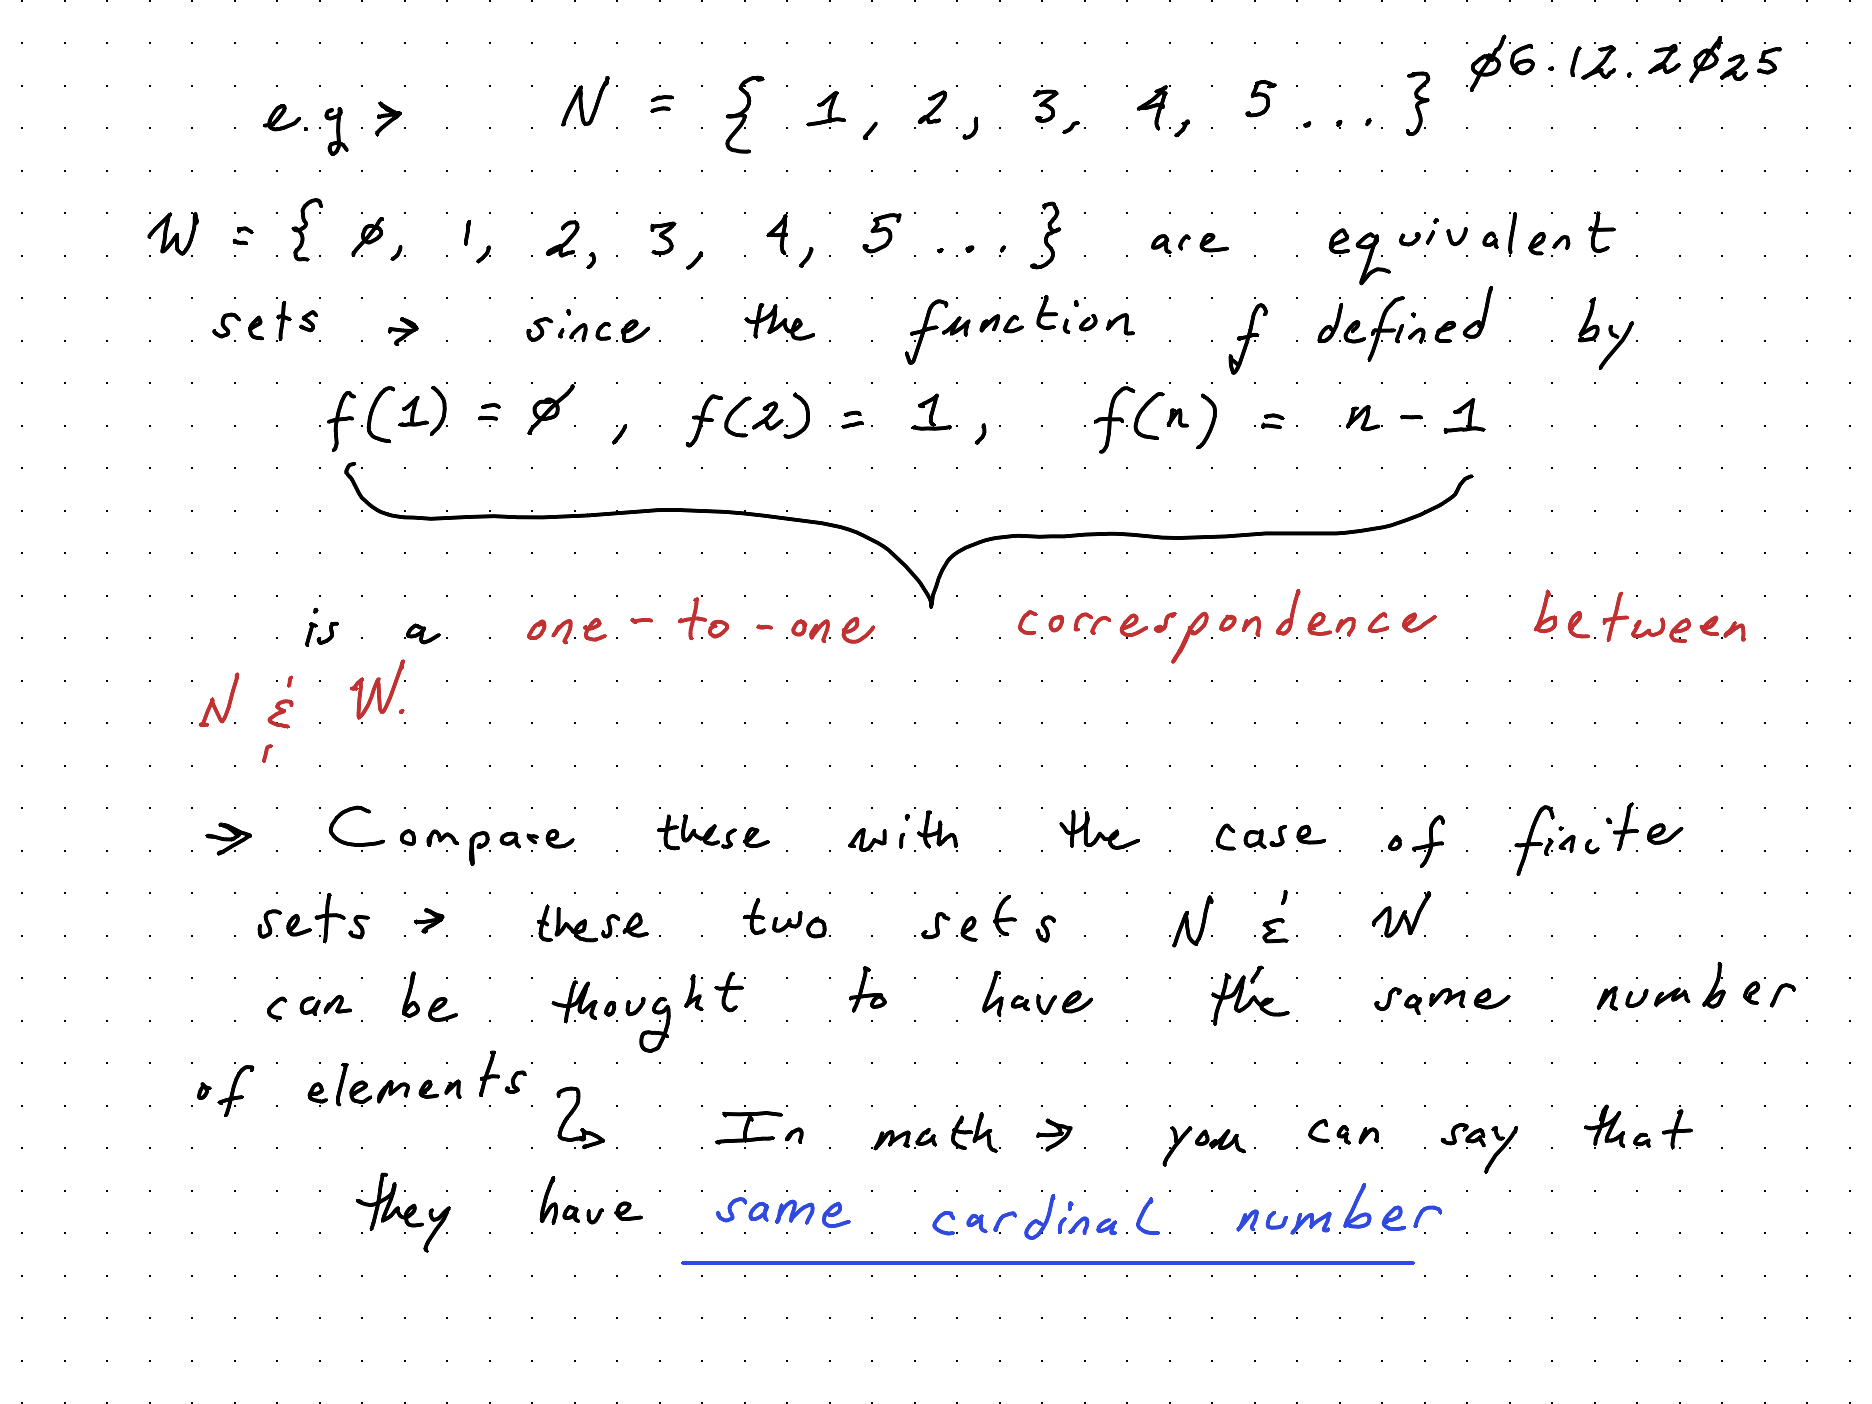 ø6.12.2ø25
e.g → N = { 1, 2, 3, 4, 5 ... }
W = { ø, 1, 2, 3, 4, 5 ... } are equivalent
sets → since the function f defined by
f(1) = ø, f(2) = 1, f(n) = n - 1
is a one-to-one correspondence between
N & W.
→ Compare these with the case of finite
sets → these two sets N & W
can be thought to have the same number
of elements
In math → you can say that
they have same cardinal number